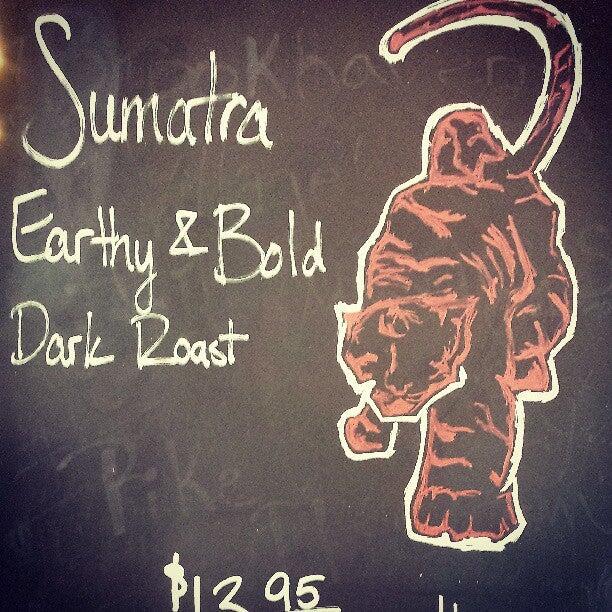 Sumatra
Earthy & Bold
Dark Roast
Pike
$13.95